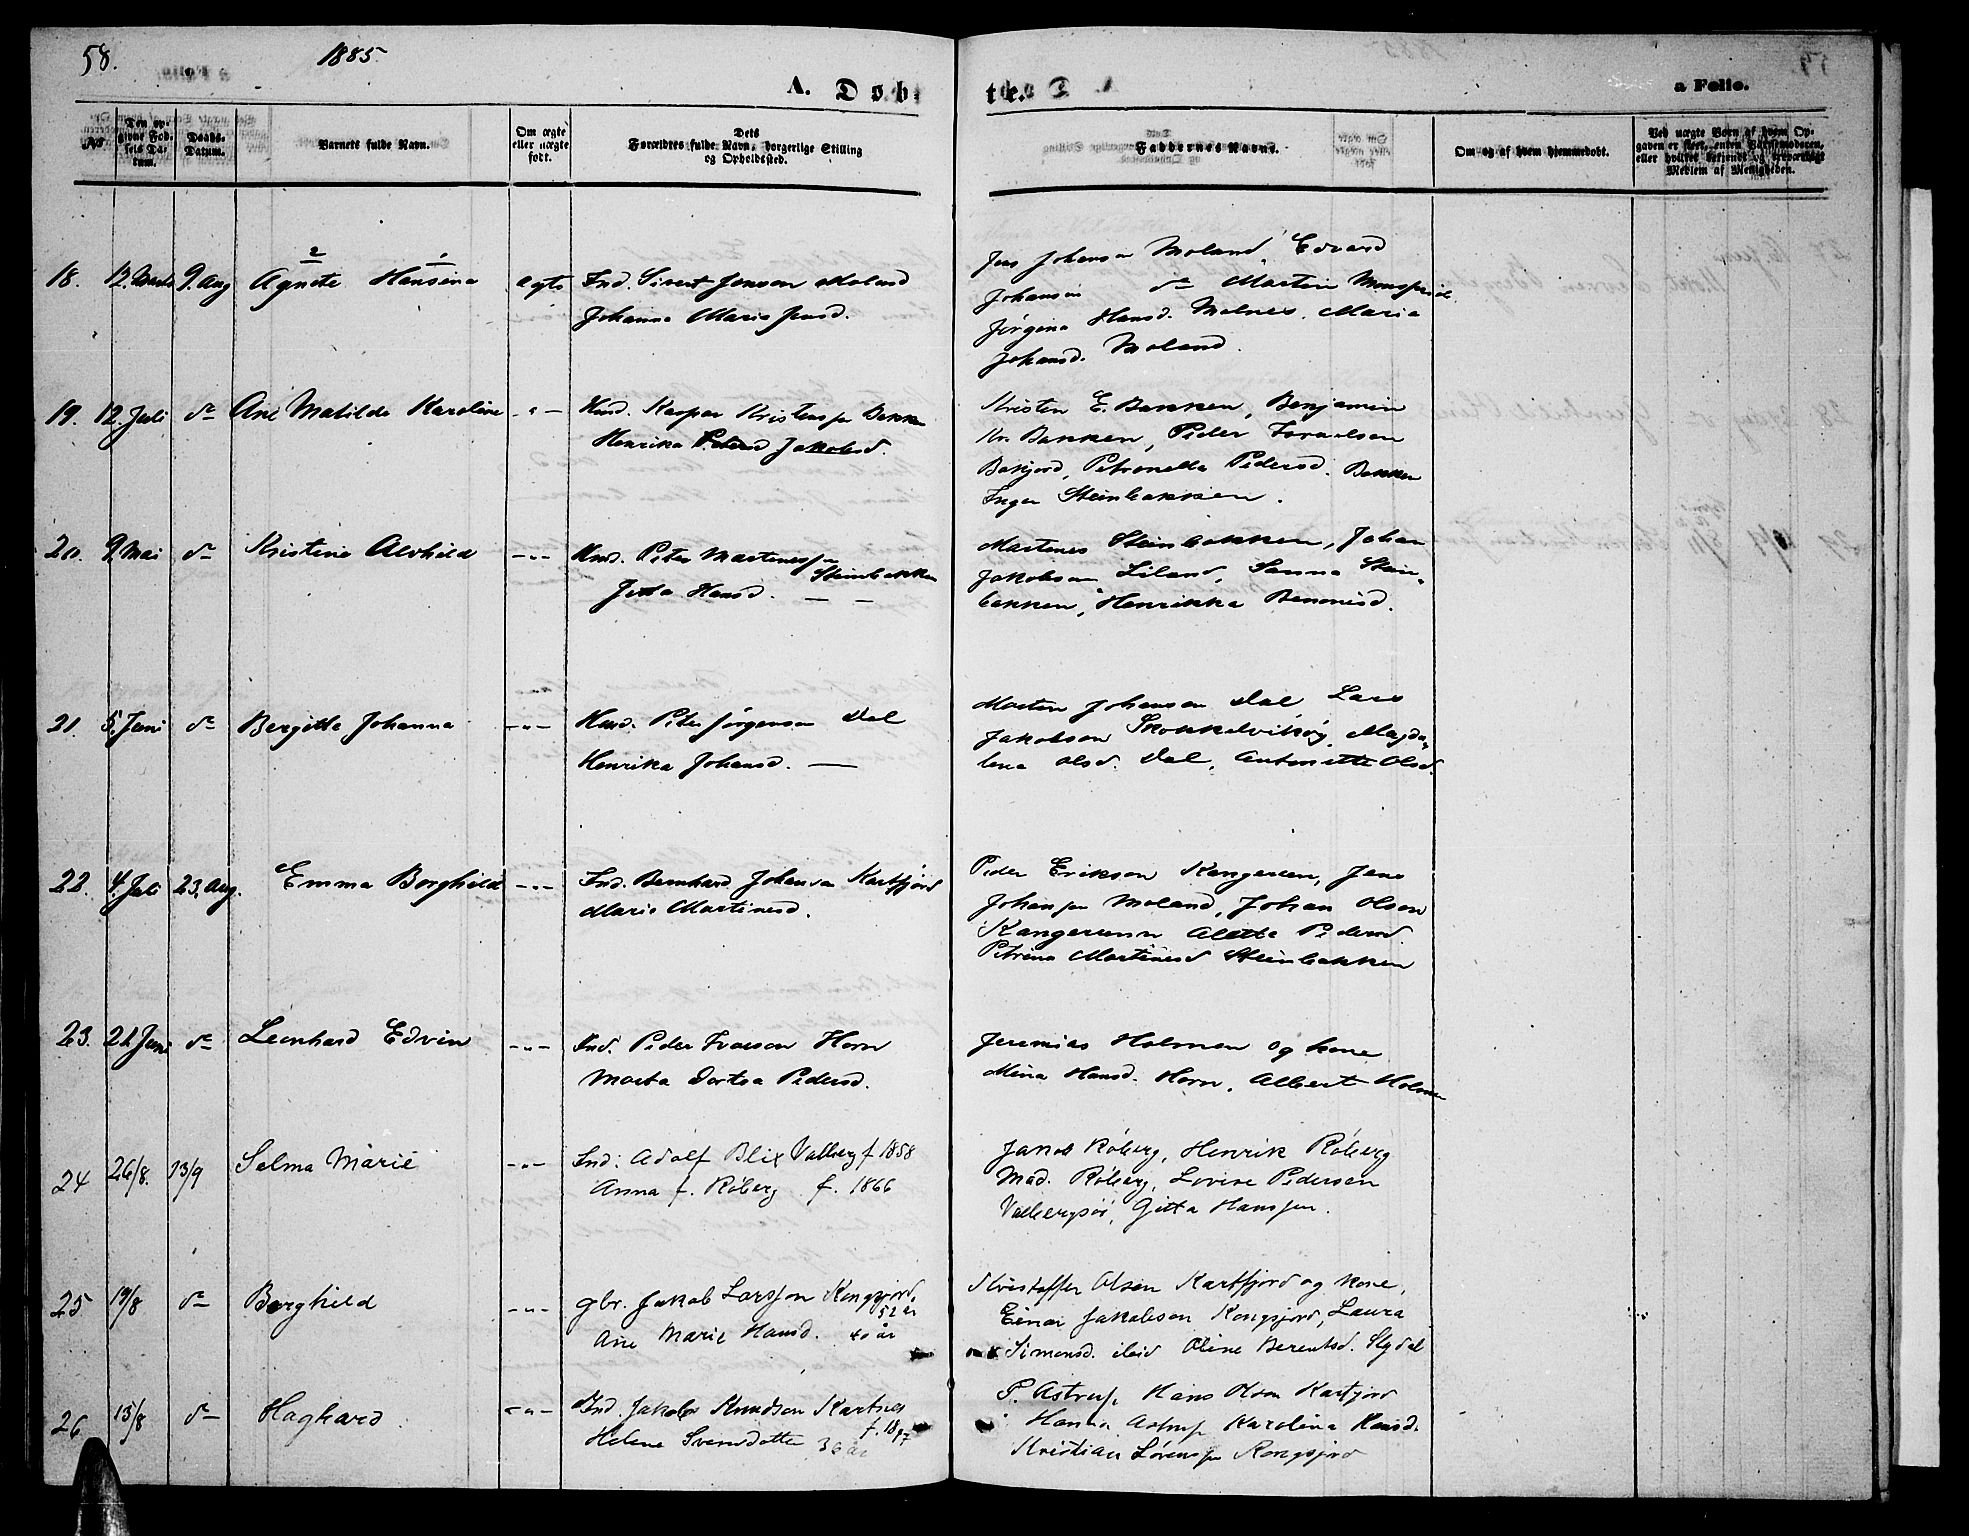 58. 1885.
A. Døb-
te.
a Folio.
No
Den op-
givne Fød-
sels Da-
tum.
Daabs-
Datum.
Barnets fulde Navn.
Om ægte
eller uægte
født.
Dets
Forældres fulde Navn, borgerlige Stilling
og Opholdssted.
Faddernes Navne.
Om og af hvem hjemmedøbt.
Ved uægte Børn af hvem Op-
gaven er skeet, enten Barnemoderen,
eller hvilket bekjendt og troværdigt
Medlem af Menigheden.
18. 12. Marts 9. Aug Agnete Hansina 2 1 ægte Ind. Sivert Jenson Moland
Johanna Maria Jensd.
Jens Johansen Moland, Edvard
Johansen do Martin
Jørgina Hansd. Molnes, Maria
Johansd. Moland.
19. 12. Juli do Ane Matilde Karoline -"- Hmd. Kasper Kristensen Bakken
Henrika Jakobsd.
Kristen E. Bakken, Benjamin
Kr. Bakken, Peder Israelsen
Bakjord, Petronella Pedersd. Bakken
Inger Steinbakken.
20. 9. Mai do Kristine Alvhild -"- Hmd. Peter Martinessen
Steinbakken
Jetta Hansd. — —
Martines Steinbakken, Johan
Jakobsen Liland, Sanna Stein-
bakken, Henrikka Benonisd.
21. 5. Juni do Bergitte Johanna -"- Hmd. Peter Jørgensen Dal
Henrika Johansd. —
Morten Johansen Dal Lars
Jakobson Skokkelvikøy, Magda-
lena Olsd. Dal, Antonette Olsd.
22. 4. Juli 23. Aug. Emma Borghild -"- Ind. Bernhard Johansen Kartfjord
Marie Martinesd.
Peder Erikson Kangerunn, Jens
Johansen Moland, Johan Olson
Kangerunn Aletta Pedersd.
Petrina Martinesd Steinbakken
23. 21 Juni do Leonhard Edvin -"- Ind. Peder Ivarson Horn
Marta Dortea Pedersd.
Jeremias Holmen og kone
Mina Hansd. Horn, Albert Holmen
24 26/8. 13/9 Selma Marie -"- Ind. Adolf Blix Valberg f 1858
Anna f. Røberg f. 1866
Jakob Røberg, Henrik Røberg
Mad. Røberg, Lovise Pedersen
Valbergsøi, Gitta Hanssen.
25 19/8 do Borghild -"- gbr. Jakob Larssen Kongsjord,
52 år
Ane Marie Hansd. 40 år
Kristoffer Olsen Kartfjord og kone,
Einar Jakobsen Kongsjord, Laura
Simonsd. ibid Oline Berentsd. Slydal
26 13/8 do Haghard -"- Ind. Jakob Knudsen Kartnes
Helene Svensdatter 36 år
P. Astrup, Hans Olsen Kartfjord
Hanna Astrup Karolina Hansd.
Kristian Lørensen Kongsjord